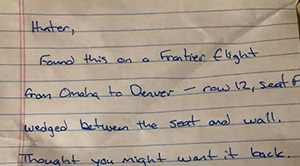 Hunter,
Found this on a Frontier flight
from Omaha to Denver — row 12, seat F
wedged between the seat and wall.
Thought you might want it back.